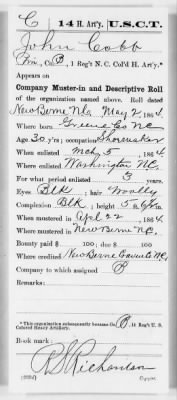 C | 14 H. Art'y. | U.S.C.T.
John Cobb
Co. B, 1 Reg't N. C. Col'd H. Art'y.*
Appears on
Company Muster-in and Descriptive Roll
of the organization named above. Roll dated
New Berne N.C. May 2, 1864.
Where born Greene Co NC
Age 30 y'rs; occupation Shoemaker
When enlisted Mch 5, 1864
Where enlisted Washington NC.
For what period enlisted 3 years.
Eyes Blk; hair Woolly
Complexion Blk; height 5 ft. in.
When mustered in Apl 22, 1864
Where mustered in New Berne N.C.
Bounty paid $ 100; due $ 100
Where credited New Berne NC.
Company to which assigned B
Remarks:
*This organization subsequently became Co. B, 14 Reg't U. S.
Colored Heavy Artillery.
Book mark:
R S Richardson
Copyist.